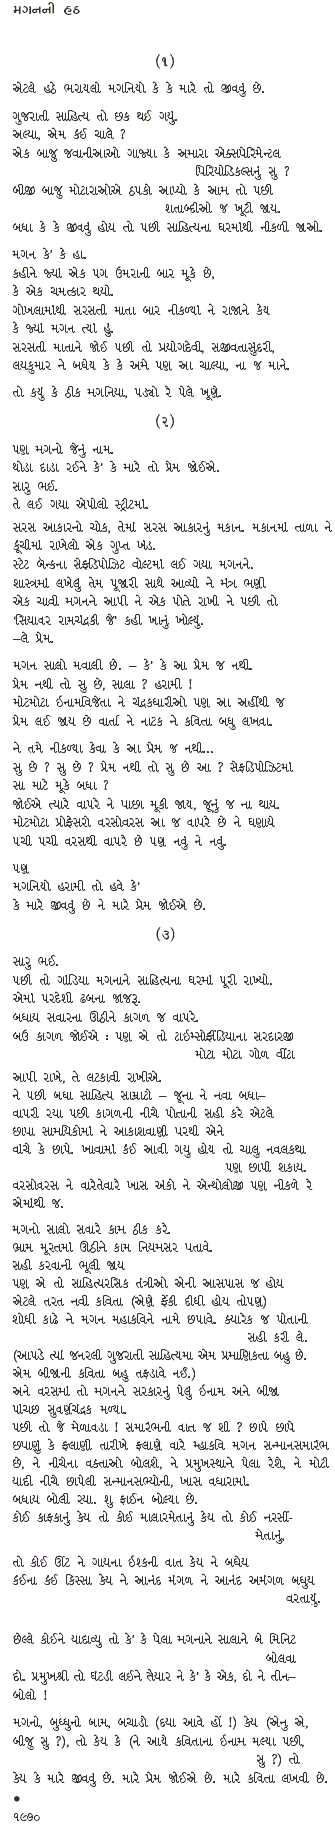 મગનની હઠ
(૧)
એટલે હઠે ભરાયલો મગનિયો કે કે મારે તો જીવવું છે.
ગુજરાતી સાહિત્ય તો છક થઈ ગયું.
અલ્યા, એમ કંઈ ચાલે ?
એક બાજુ જવાનીઆઓ ગાજ્યા કે અમારા એક્સપેરિમેન્ટલ
પિરિયોડિકલ્સનું સુ ?
બીજી બાજુ મોટારાઓએ ઠપકો આપ્યો કે આમ તો પછી
શતાબ્દીઓ જ ખૂટી જાય.
બધા કે કે જીવવું હોય તો પછી સાહિત્યના ઘરમાંથી નીકળી જાઓ.
મગન કે' કે હા.
કહીને જ્યાં એક પગ ઉમરાની બાર મૂકે છે,
કે એક ચમત્કાર થયો.
ગોખલામાંથી સરસતી માતા બાર નીકળ્યાં ને રાજાને કેય
કે જ્યાં મગન ત્યાં હું.
સરસતી માતાને જોઈ પછી તો પ્રયોગદેવી, સજીવતાસુંદરી,
લયકુમાર ને બધેય કે કે અમે પણ આ ચાલ્યા, ના જ માને.
તો કયું કે ઠીક મગનિયા, પડ્યો રે પેલે ખૂણે.
(૨)
પણ મગનો જેનું નામ.
થોડા દાડા રઈને કે' કે મારે તો પ્રેમ જોઈએ.
સારુ ભઈ.
તે લઈ ગયા એપોલો સ્ટ્રીટમાં.
સરસ આકારનો ચોક, તેમાં સરસ આકારનું મકાન. મકાનમાં તાળા ને
કૂંચીમાં રાખેલો એક ગુપ્ત ખંડ.
સ્ટેટ બેન્કના સેફડિપોઝિટ વોલ્ટમાં લઈ ગયા મગનને.
શાસ્ત્રમાં લખેલું તેમ પૂજારી સાથે આવ્યો ને મંત્ર ભણી
એક ચાવી મગનને આપી ને એક પોતે રાખી ને પછી તો
'સિયાવર રામચંદ્રકી જે' કહી ખાનું ખોલ્યું.
–લે પ્રેમ.
મગન સાલો મવાલી છે. – કે' કે આ પ્રેમ જ નથી.
પ્રેમ નથી તો સુ છે, સાલા ? હરામી !
મોટમોટા ઈનામવિજેતા ને ચંદ્રકધારીઓ પણ આ અહીંથી જ
પ્રેમ લઈ જાય છે વાર્તા ને નાટક ને કવિતા બધુ લખવા.
ને તમે નીકળ્યા કેવા કે આ પ્રેમ જ નથી...
સુ છે ? સુ છે ? પ્રેમ નથી તો સુ છે આ ? સેફડિપોઝિટમાં
સા માટે મૂકે બધા ?
જોઈએ ત્યારે વાપરે ને પાછા મૂકી જાય, જૂનું જ ના થાય.
મોટમોટા પ્રોફેસરો વરસોવરસ આ જ વાપરે છે ને ઘણાયે
પચી પચી વરસથી વાપરે છે પણ નવું ને નવું.
પણ
મગનિયો હરામી તો હવે કે'
કે મારે જીવવું છે ને મારે પ્રેમ જોઈએ છે.
(૩)
સારુ ભઈ.
પછી તો ગાંડિયા મગનાને સાહિત્યના ઘરમાં પૂરી રાખ્યો.
એમાં પરદેશી ઢબનાં જાજરૂ.
બધાય સવારના ઊઠીને કાગળ જ વાપરે.
બઉ કાગળ જોઈએ : પણ એ તો ટાઈમ્સોફીંડિયાના સરદારજી
મોટા મોટા ગોળ વીંટા
આપી રાખે, તે લટકાવી રાખીએ.
ને પછી બધા સાહિત્ય સામ્રાટો – જૂના ને નવા બધા–
વાપરી રયા પછી કાગળની નીચે પોતાની સહી કરે એટલે
છાપા સામયિકોમાં ને આકાશવાણી પરથી એને
વાંચે કે છાપે. ખાવામાં કંઈ આવી ગયું હોય તો ચાલુ નવલકથા
પણ છાપી શકાય.
વરસોવરસ ને વારેતેવારે ખાસ અંકો ને એન્થોલોજી પણ નીકળે રે
એમાંથી જ.
મગનો સાલો સવારે કામ ઠીક કરે.
ભ્રામ મૂરતમાં ઊઠીને કામ નિયમસર પતાવે.
સહી કરવાની ભૂલી જાય
પણ એ તો સાહિત્યરસિક તંત્રીઓ એની આસપાસ જ હોય
એટલે તરત નવી કવિતા (એણે ફેંકી દીધી હોય તોપણ)
શોધી કાઢે ને મગન મહાકવિને નામે છપાવે. ક્યારેક જ પોતાની
સહી કરી લે.
(આપડે ત્યાં જનરલી ગુજરાતી સાહિત્યમાં એમ પ્રમાણિકતા બહુ છે.
એમ બીજાની કવિતા બહુ તફડાવે નઈં.)
અને વરસમાં તો મગનને સરકારનું પેલું ઇનામ અને બીજા
પાંચછ સુવર્ણચંદ્રક મળ્યા.
પછી તો જે મેળાવડા ! સમારંભની વાત જ શી ? છાપે છાપે
છપાણું કે ફલાણી તારીખે ફલાણે વારે મહાકવિ મગન સન્માનસમારંભ
છે, ને નીચેના વક્તાઓ બોલશે, ને પ્રમુખસ્થાને પેલા રેશે, ને મોટી
યાદી નીચે છાપેલી સન્માનસભ્યોની, ખાસ વધારામાં.
બધાય બોલી રયા. શુ ફાઈન બોલ્યા છે.
કોઈ કાફકાનું કેય તો કોઈ માલારમેતાનું કેય તો કોઈ નરસીં-
મેતાનું,
તો કોઈ ઊંટ ને ગાયના ઇશ્કની વાત કેય ને બધેય
કંઈના કંઈ કિસ્સા કેય ને આનંદ મંગળ ને આનંદ અમંગળ બધુય
વરતાયું.
છેલ્લે કોઈને યાદાવ્યું તો કે' કે પેલા મગનાને સાલાને બે મિનિટ
બોલવા
દો. પ્રમુખશ્રી તો ઘંટડી લઈને તૈયાર ને કે' કે એક, દો ને તીન–
બોલો !
મગનો, બુધ્ધુનો બામ, બચાડો (દયા આવે હોં !) કેય (એનું એ,
બીજું સુ ?), તો કેય કે (ને આયે કવિતાના ઇનામ મલ્યા પછી,
સુ ?) તો
કેય કે મારે જીવવું છે. મારે પ્રેમ જોઈએ છે. મારે કવિતા લખવી છે.
●
૧૯૭૦